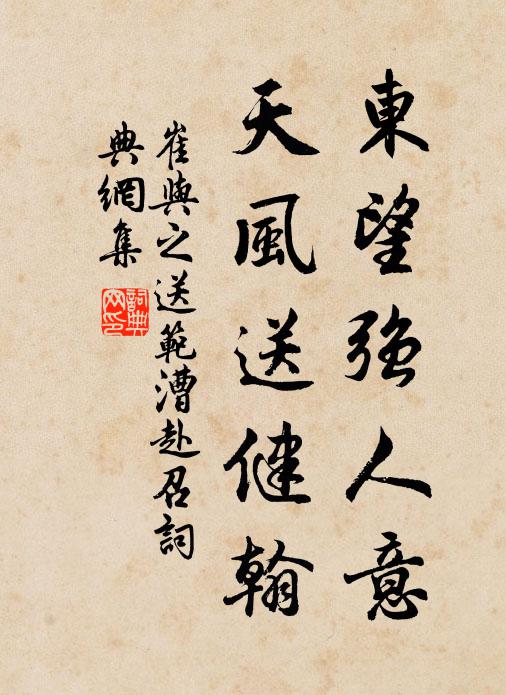 東望強人意
天風送健翰
崔與之送範漕赴召詞
典網集
詞典
网印